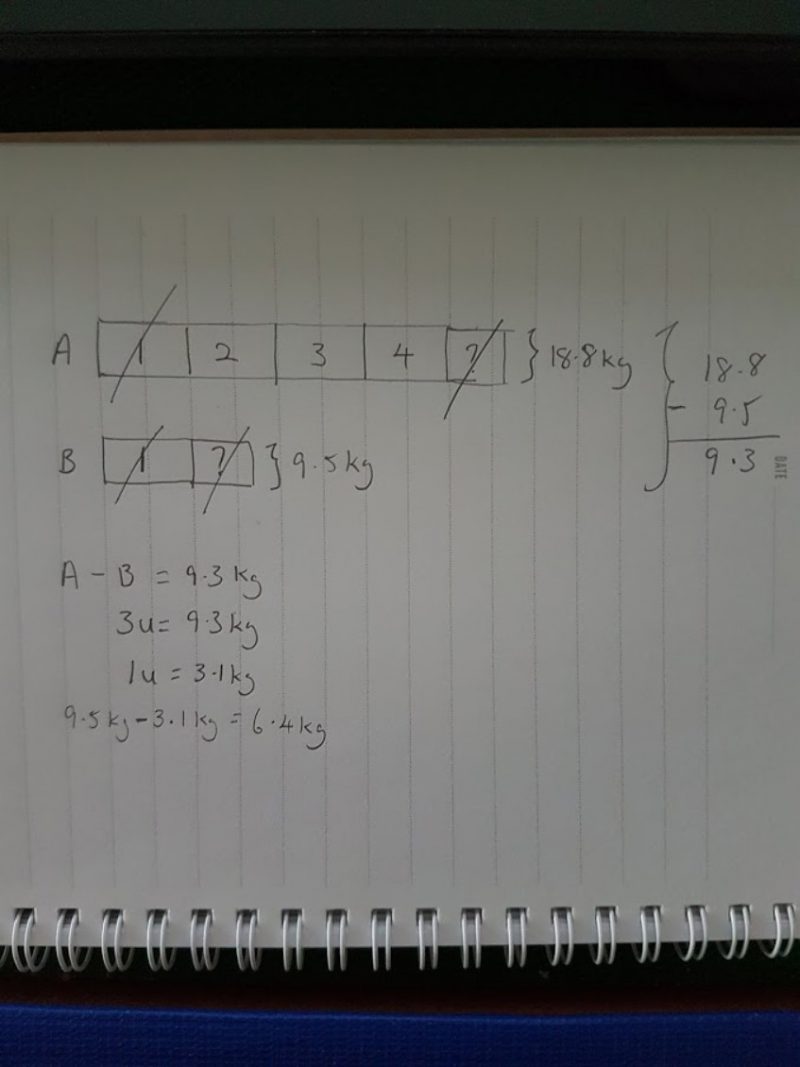 A 1 2 3 4 ? } 18.8kg
18.8
- 9.5
9.3
B 1 ? } 9.5kg
DATE
A - B = 9.3kg
3u= 9.3kg
1u = 3.1kg
9.5kg-3.1kg = 6.4kg